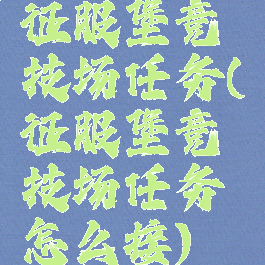 征服堡竞
技场任务(
征服堡竞
技场任务
怎么接)